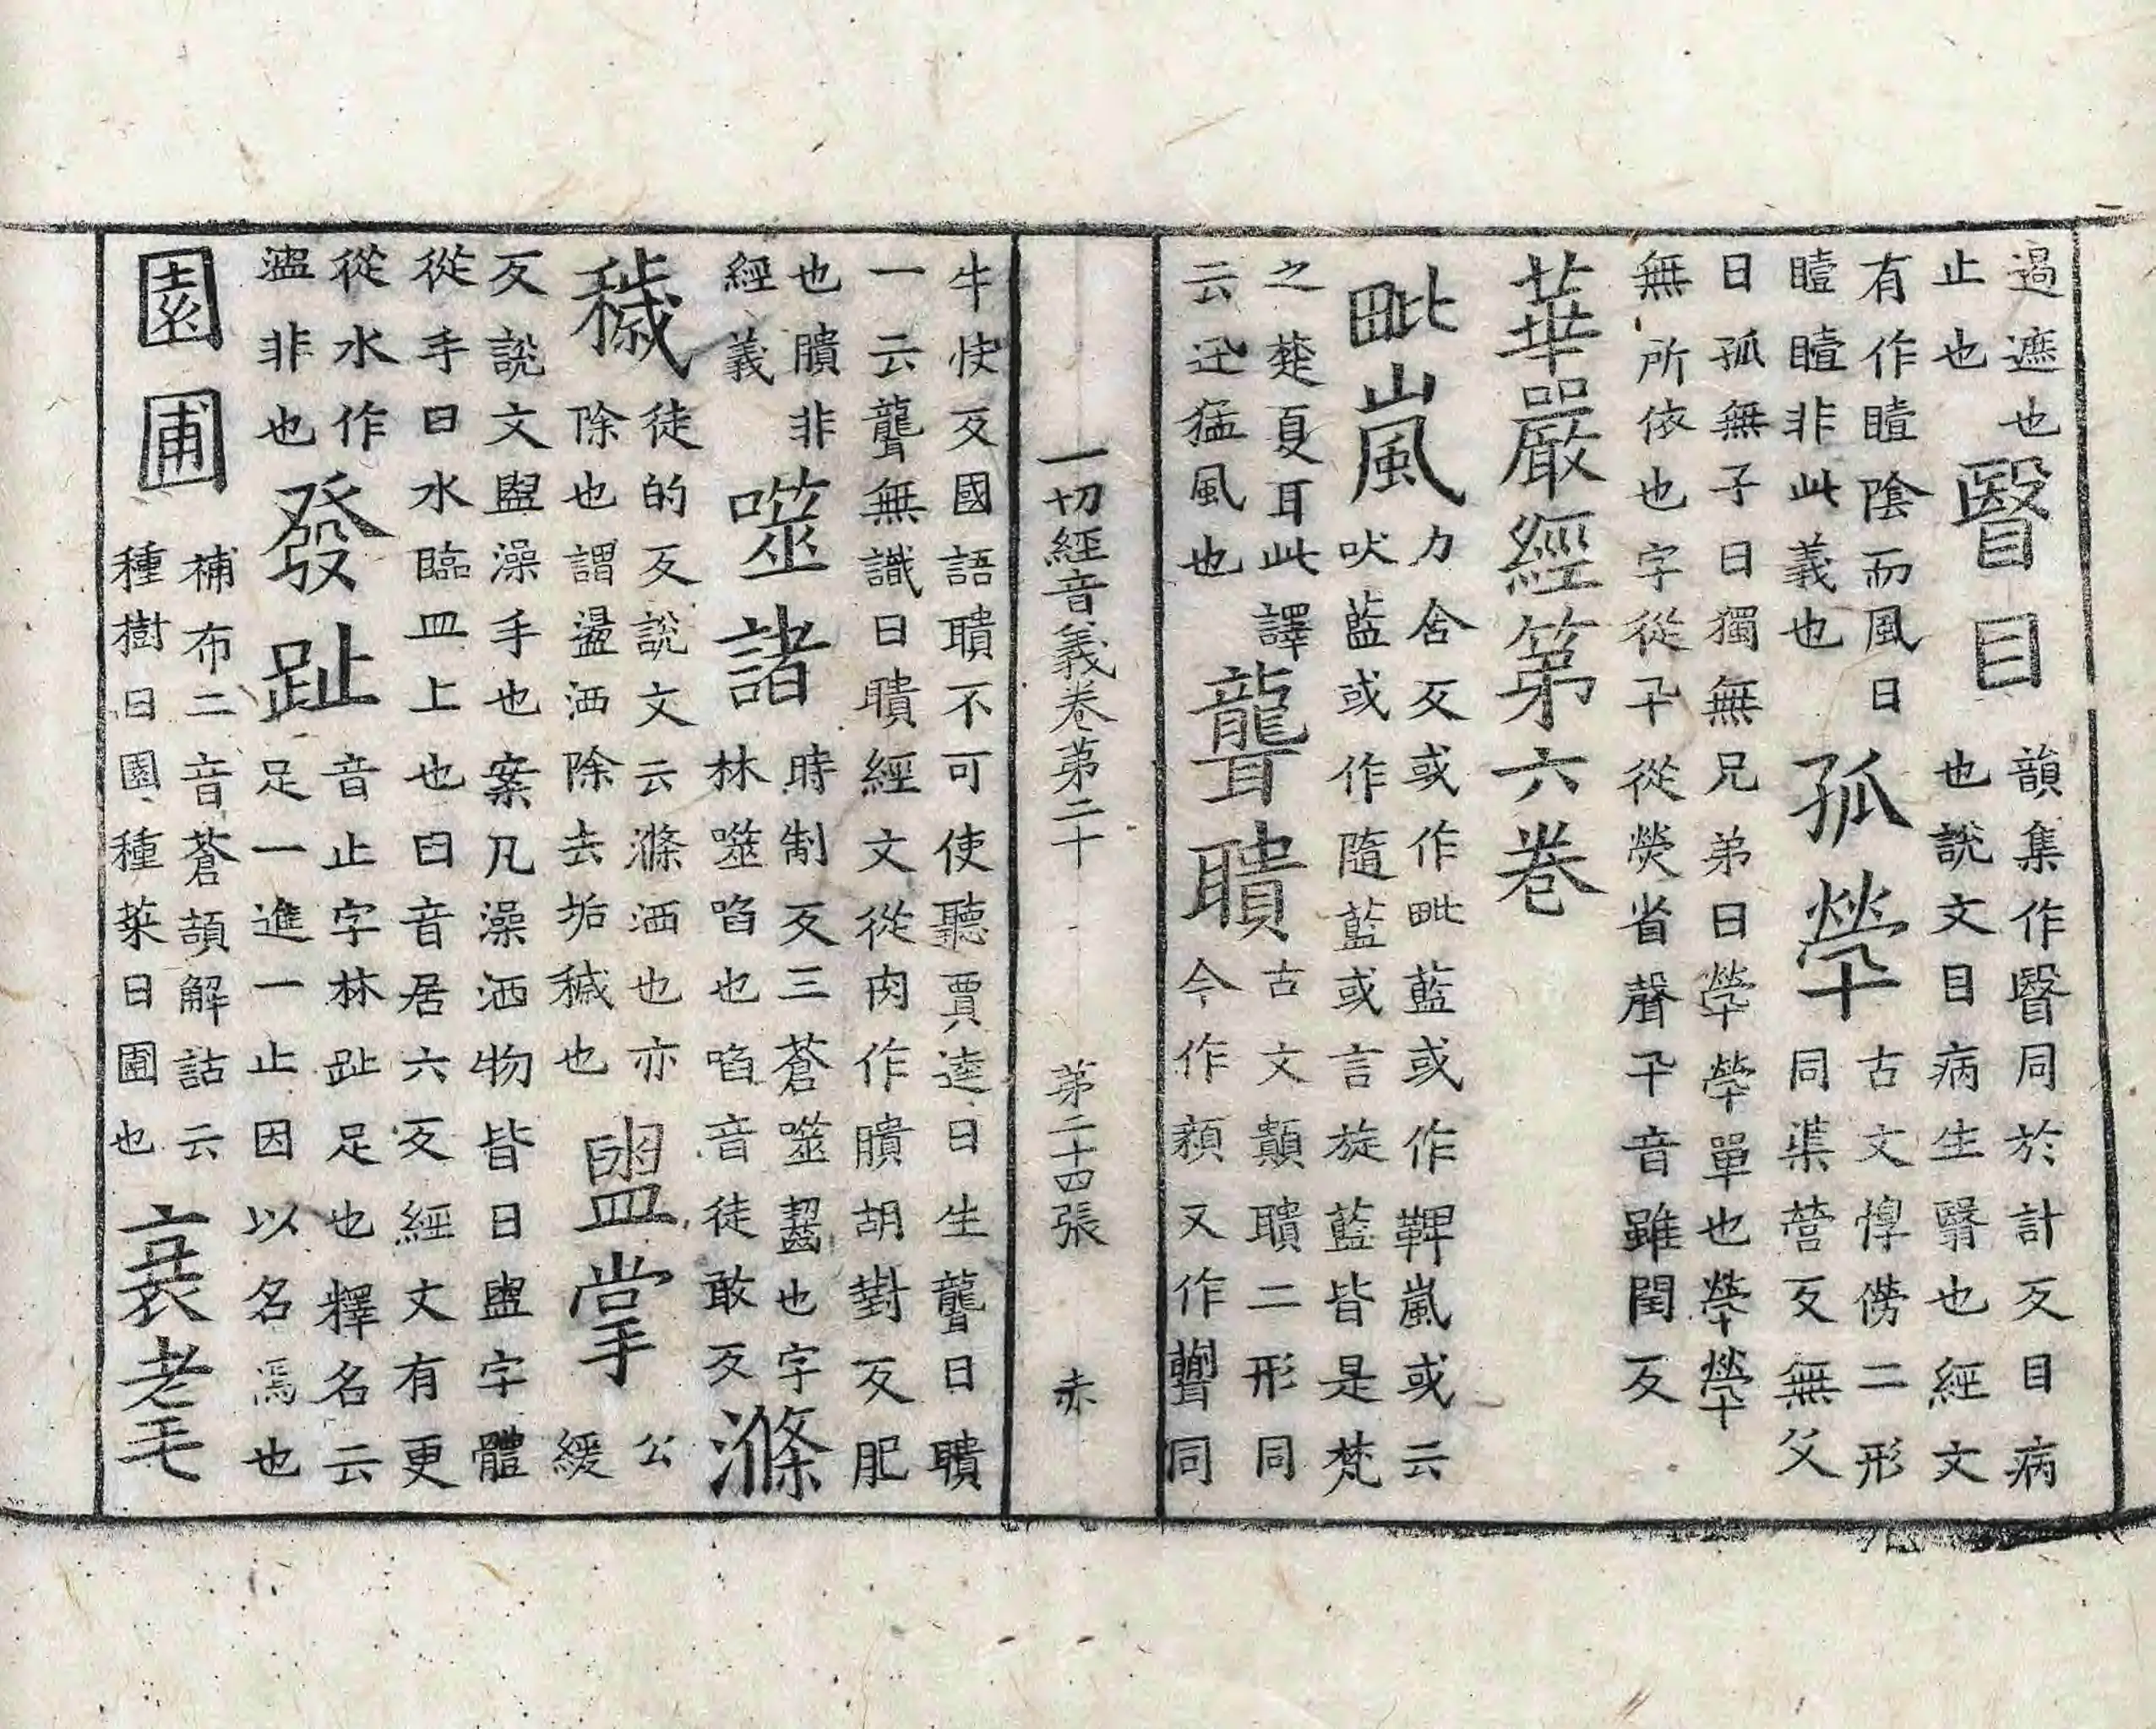 過遮也
止也
瞖目
韻集作瞖同於計反目病
也說文目病生瞖也經文
有作曀陰而風日
曀曀非此義也
孤煢
古文惸㒚二形
同渠營反無父
曰孤無子曰獨無兄弟曰煢煢單也煢煢
無所依也字從卂從熒省聲卂音雖閏反
華嚴經第六巻
毗嵐
力含反或作毗藍或作鞞嵐或云
吠藍或作隨藍或言旋藍皆是梵
之楚夏耳此譯
云迅猛風也
聾聵
古文顛聵二形同
今作頪又作同
一切經音義巻第二十 第二十四張 赤
牛快反國語聵不可使聽賈逵曰生聾曰聵
一云聾無識曰聵經文從肉作膭胡對反肥
也膭非
經義
噬諸
時制反三蒼噬齧也字
林噬啗也啗音徒敢反
滌
穢
徒的反說文云滌洒也亦
除也謂盪洒除去垢穢也
盥掌
公
緩
反說文盥澡手也案凡澡洒物皆曰盥字體
從手臼水臨皿上也臼音居六反經文有更
從水作
盜非也
發趾
音止字林趾足也釋名云
足一進一止因以名焉也
園圃
補布二音蒼頡解詁云
種樹曰園種菜曰圃也
衰耄